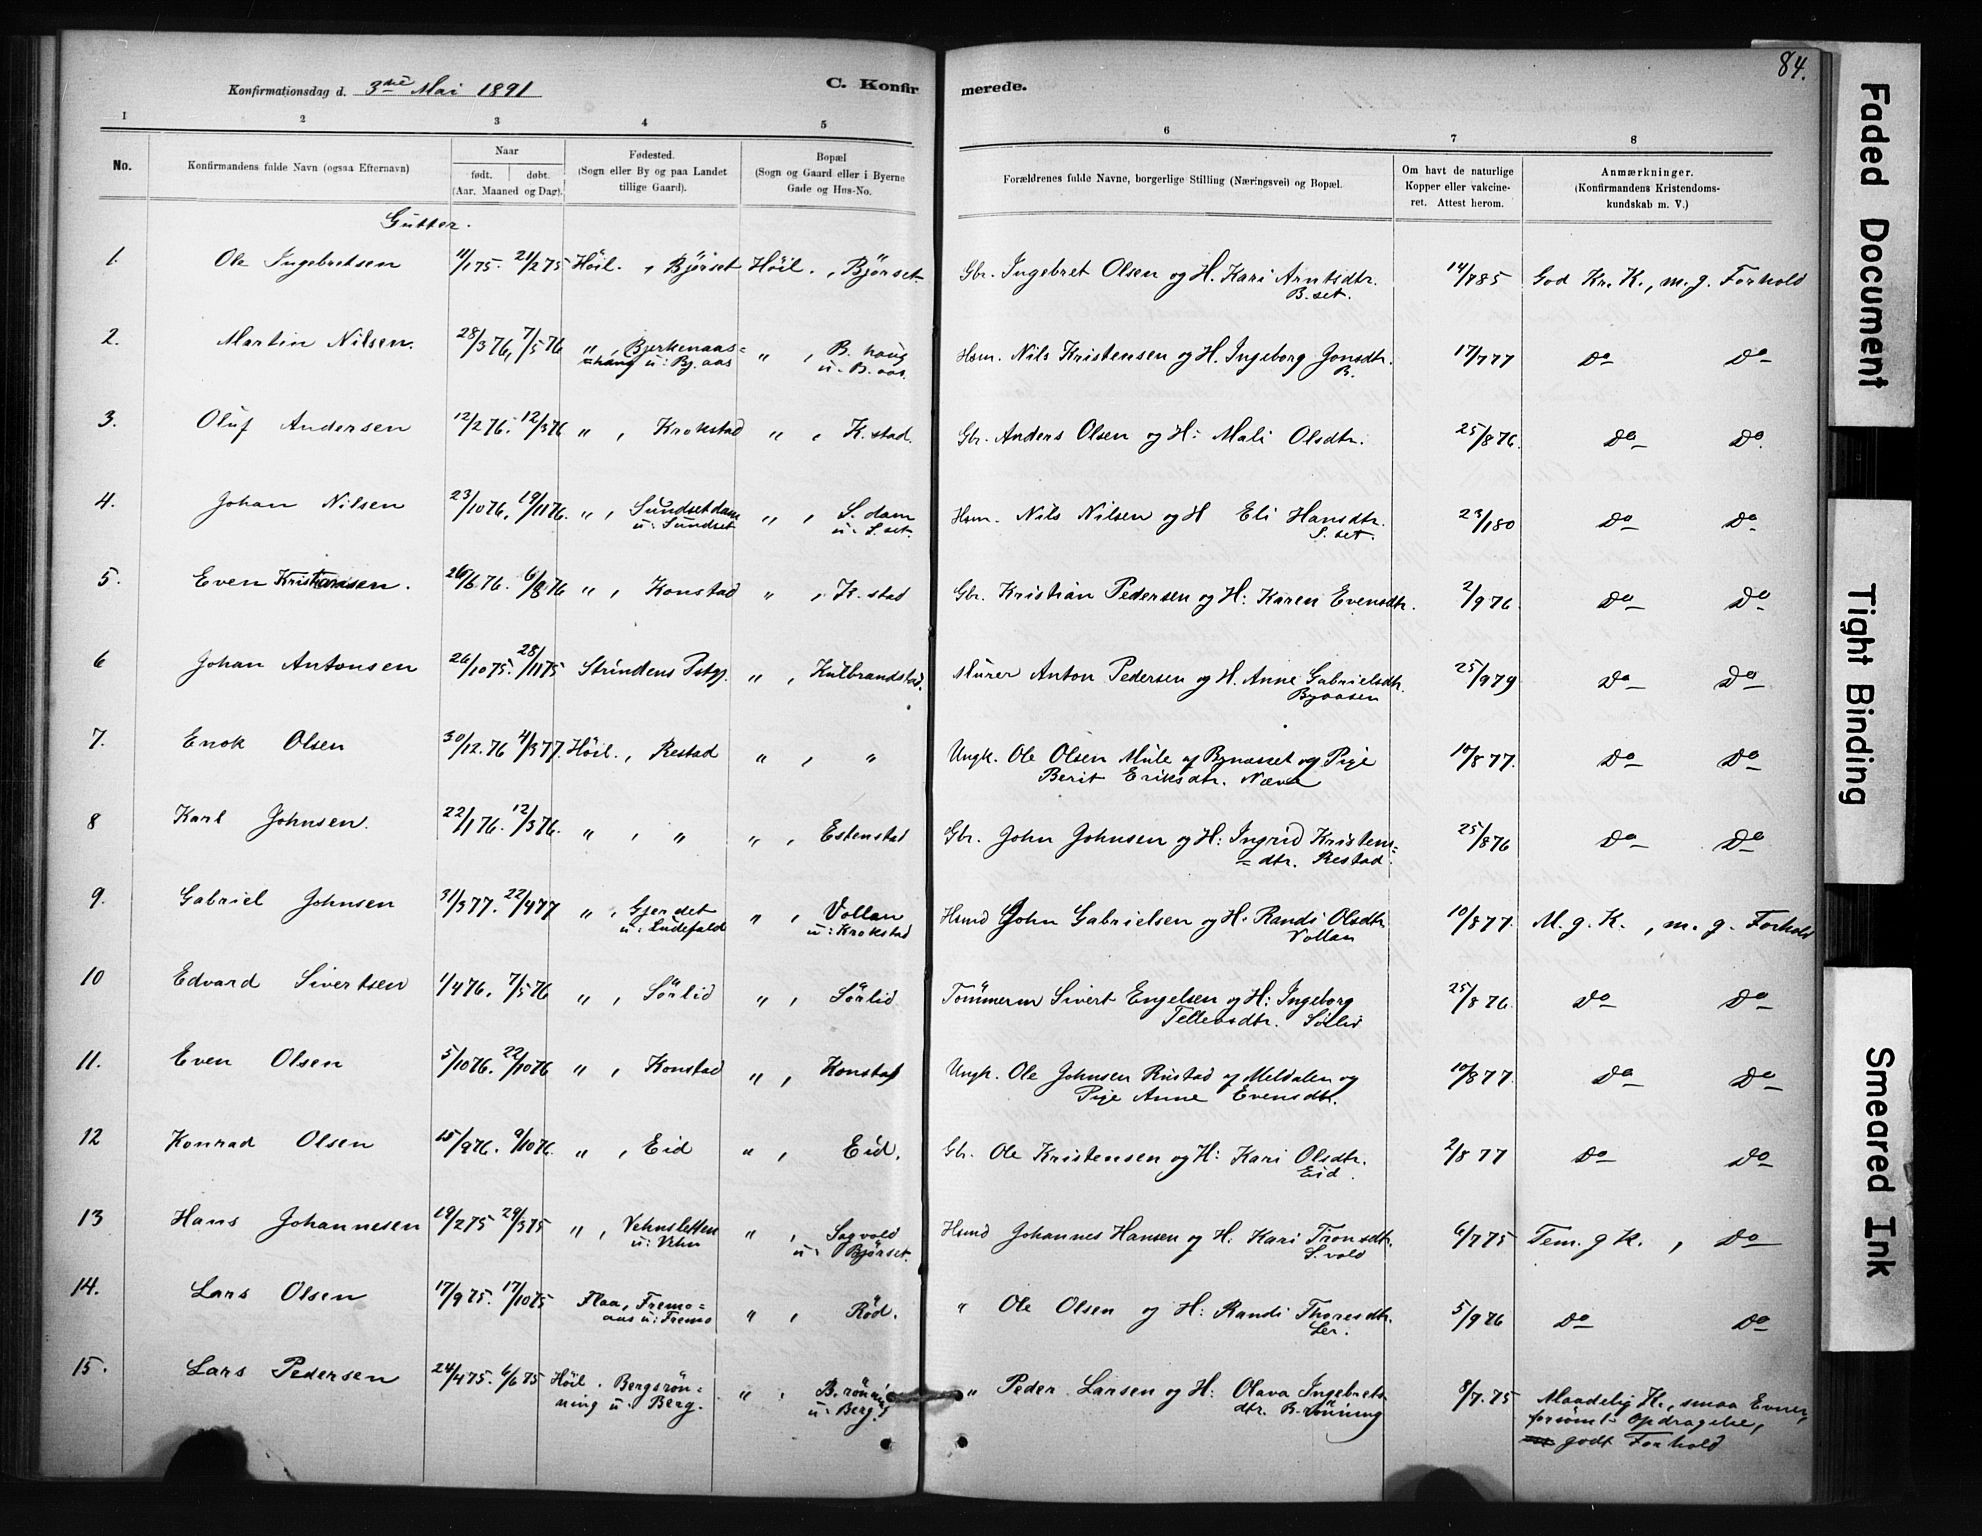 84.
Konfirmationsdag d. 3die Mai 1891
C. Konfirmerede.
1 2 3 4 5 6 7 8
No. Konfirmandens fulde Navn (ogsaa Efternavn) Naar født. døbt. (Aar. Maaned og Dag). Fødested. (Sogn eller By og paa Landet tillige Gaard). Bopæl (Sogn og Gaard eller i Byerne Gade og Hus-No. Forældrenes fulde Navne, borgerlige Stilling (Næringsvei) og Bopæl. Om havt de naturlige Kopper eller vakcineret. Attest herom. Anmærkninger. (Konfirmandens Kristendomskundskab m. V.)
Gutter.
1. Ole Ingebretsen 11/1 75. 21/2 75 Höil. , Bjørset Höil. , Bjørset. Gbr. Ingebret Olsen og H. Kari Arntsdtr. B.set. 14/7 85 God Kr. K., m. g. Forhold
2. Martin Nilsen. 28/3 76, 7/5 76 " , Bjerkenaas=haug u: Bj. aas " , B. haug u. B. aas. Hsm. Nils Kristensen og H. Ingeborg Jonsdtr. B. 17/7 77 Do Do
3. Oluf Andersen 12/2 76. 12/3 76 " , Krokstad " , K. stad. Gbr. Anders Olsen og H: Mali Olsdtr. 25/8 76. Do Do.
4. Johan Nilsen 23/10 76, 19/11 76. " , Sundsetdam u: Sundset " , S. dam u. S. set. Hsm. Nils Nilsen og H Eli Hansdtr. S. set. 23/1 80 Do Do
5. Even Kristiansen. 26/6 76. 6/8 76 " , Konstad " , K. stad Gbr. Kristian Pedersen og H: Karen Evensdtr. 2/9 76 Do Do
6 Johan Antonsen 26/10 75. 28/11 75 Strindens Pstgj. " , Kulbrandstad. Murer Anton Pedersen og H. Anne Gabrielsdtr. Byaasen 25/9 79 Do Do
7. Enok Olsen 30/12. 76 4/3 77. Höil. , Restad " , " Ungk. Ole Olsen Mule af Bynæsset og Pige Berit Eriksdtr. 10/8 77. Do Do
8 Karl Johnsen. 22/1 76. 12/3 76. " , " " , Estenstad Gbr. John Johnsen og H: Ingrid Kristens=dtr. Restad. 25/8 76 Do Do
9. Gabriel Johnsen 31/3 77. 22/4 77 " , Gjerdet u: Ludefald " , Vollan u: Krokstad Hsmd John Gabrielsen og H: Randi Olsdtr Vollan 10/8 77. M. g. K. , m. g. Forhold
10 Edvard Sivertsen 1/4 76. 7/5 76 " , Sörlid " , Sörlid. Tömmerm Sivert Engelsen og H: Ingeborg Tellevsdtr. Sörlid 25/8 76. Do Do
11. Even Olsen 5/10 76. 22/10 76 " , Konstad " , Konstad Ungk. Ole Johnsen Rustad af Meldalen og Pige Anne Evensdtr. 10/8 77. Do Do
12 Konrad Olsen 15/9 76. 9/10 76. " , Eid " , Eid. Gbr. Ole Kristensen og H: Kari Olsdtr. Eid. 2/8 77 Do Do
13 Hans Johannesen 19/2 75 29/3 75 " , Vehnsletten u: Vehn " , Sagvold u: Bjørset. Hsmd Johannes Hansen og H. Kari Tronsdtr. S. vold 6/7 75 Tem. g K. , Do
14. Lars Olsen 17/9 75. 17/10 75 Flaa, Fremo=aas u: Fremo " , Rød. " Ole Olsen og H: Randi Thoresdtr. Ler. 5/9 76 Do Do
15. Lars Pedersen 24/4 75. 6/6 75 Höil . Bergsrön=ning u. Berg. " . B. rönning u: Berg. " Peder Larsen og H: Olava Ingebrets dtr. B. rönning 8/7. 75 Maadelig K., smaa Evner, forsömt Opdragelse, godt Forhold
Faded Document
Tight Binding
Smeared Ink